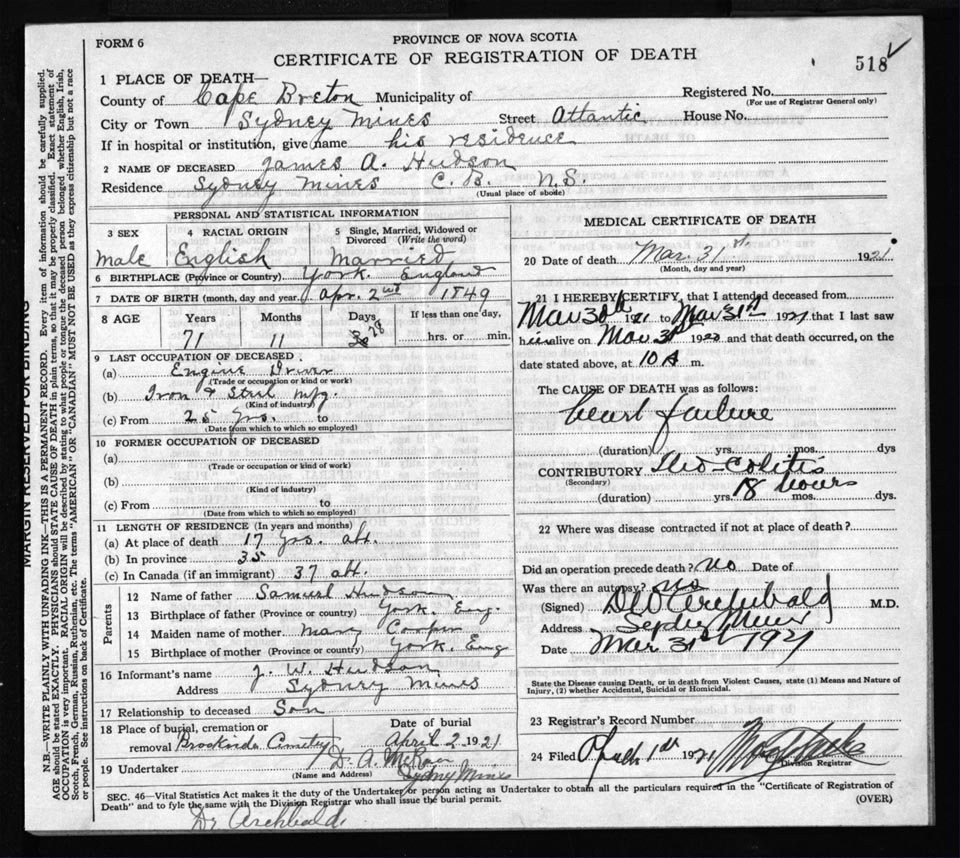 FORM 6
PROVINCE OF NOVA SCOTIA
CERTIFICATE OF REGISTRATION OF DEATH
518
1 PLACE OF DEATH—
County of Cape Breton Municipality of
Registered No.
(For use of Registrar General only)
City or Town Sydney Mines Street Atlantic House No.
If in hospital or institution, give name his residence
2 NAME OF DECEASED James A. Hudson
Residence Sydney Mines C. B. N. S.
(Usual place of abode)
PERSONAL AND STATISTICAL INFORMATION
3 SEX Male
4 RACIAL ORIGIN English
5 Single, Married, Widowed or Divorced (Write the word) Married
6 BIRTHPLACE (Province or Country) York. England
7 DATE OF BIRTH (month, day and year) Apr. 2nd 1849
8 AGE Years Months Days If less than one day,
71 11 28 hrs. or min.
9 LAST OCCUPATION OF DECEASED
(a) Engine Driver
(Trade or occupation or kind or work)
(b) Iron & Steel Mfg.
(Kind of industry)
(c) From 25 yrs. to
(Date from which to which so employed)
10 FORMER OCCUPATION OF DECEASED
(a)
(Trade or occupation or kind of work)
(b)
(Kind of industry)
(c) From to
(Date from which to which so employed)
11 LENGTH OF RESIDENCE (In years and months)
(a) At place of death 17 yrs.
(b) In province 35
(c) In Canada (if an immigrant) 37
Parents
12 Name of father Samuel Hudson
13 Birthplace of father (Province or country) York. Eng.
14 Maiden name of mother Mary Cooper
15 Birthplace of mother (Province or country) York. Eng
16 Informant's name J. W. Hudson
Address Sydney Mines
17 Relationship to deceased Son
18 Place of burial, cremation or removal Brookside Cemetery
Date of burial April 2 1921
19 Undertaker D. A.
(Name and Address) Sydney Mines
MEDICAL CERTIFICATE OF DEATH
20 Date of death Mar. 31st. 1921
(Month, day and year)
21 I HEREBY CERTIFY, that I attended deceased from
Mar 30th 1921 to Mar 31st 1921 that I last saw
alive on Mar 31 192 and that death occurred, on the
date stated above, at 10 A m.
The CAUSE OF DEATH was as follows:
heart failure
(duration) yrs. mos. dys
CONTRIBUTORY Ileo-Colitis
(Secondary)
18 hours
(duration) yrs. mos. dys.
22 Where was disease contracted if not at place of death?
Did an operation precede death? no Date of
Was there an autopsy? no
(Signed) Archibald M.D.
Address
Date Mar 31st 1921
State the Disease causing Death, or in death from Violent Causes, state (1) Means and Nature of
Injury, (2) whether Accidental, Suicidal or Homicidal.
23 Registrar's Record Number
24 Filed 1st 1921
Division Registrar
SEC. 46—Vital Statistics Act makes it the duty of the Undertaker or person acting as Undertaker to obtain all the particulars required in the "Certificate of Registration of
Death" and to fyle the same with the Division Registrar who shall issue the burial permit.
(OVER)
Dr Archbald
MARGIN RESERVED FOR BINDING
N.B.—WRITE PLAINLY WITH UNFADING INK—THIS IS A PERMANENT RECORD. Every item of information should be carefully supplied.
AGE should be stated EXACTLY. PHYSICIANS should STATE CAUSE OF DEATH in plain terms, so that it may be properly classified. Exact statement of
OCCUPATION is very important. RACIAL ORIGIN will be described by stating to what people or tongue the deceased person belonged, whether English, Irish,
Scotch, French, German, Russian, Ruthenian, etc. The terms "AMERICAN" OR "CANADIAN" MUST NOT BE USED as they express citizenship but not a race
or people. See instructions on back of Certificate.